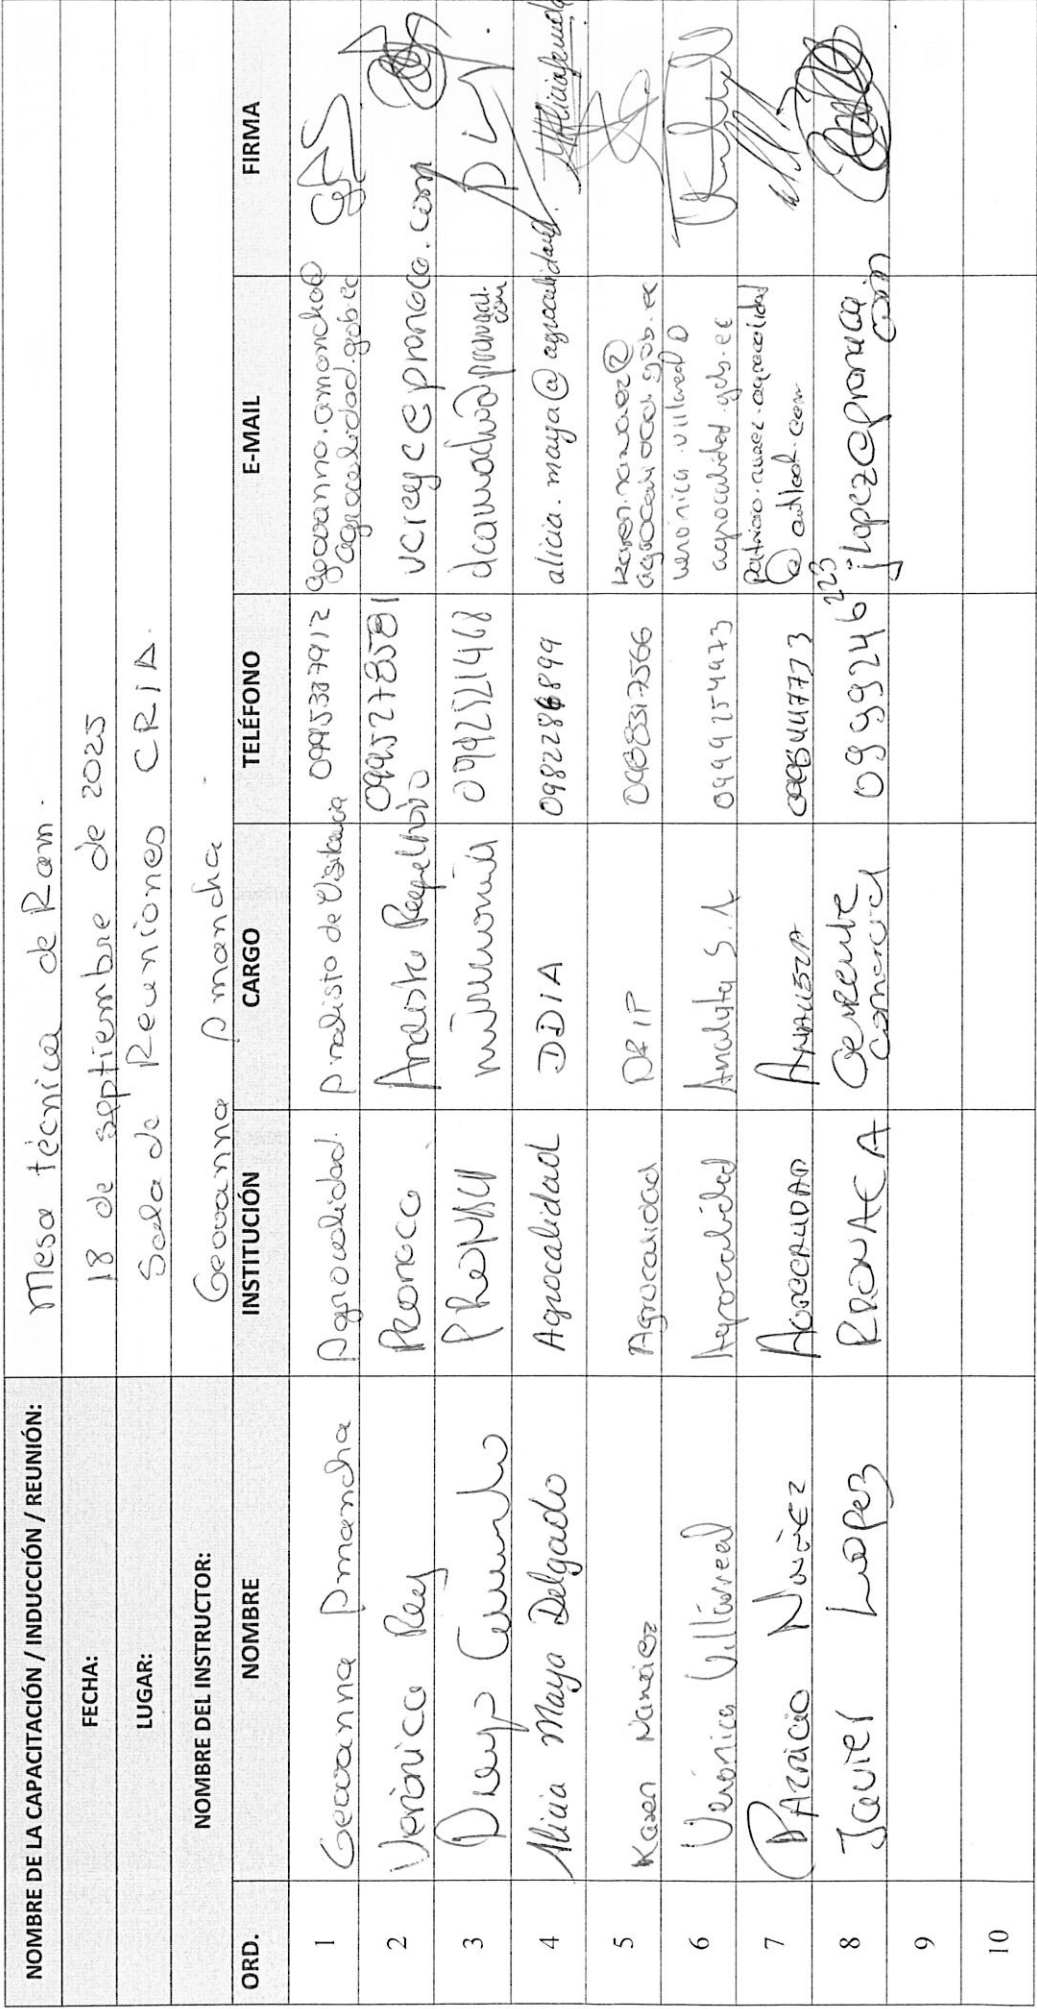 NOMBRE DE LA CAPACITACIÓN / INDUCCIÓN / REUNIÓN: Mesa técnica de Ram.
FECHA: 18 de septiembre de 2025
LUGAR: Sala de Reuniones CRIA.
NOMBRE DEL INSTRUCTOR: Geovanna Amancha
ORD. NOMBRE INSTITUCIÓN CARGO TELÉFONO E-MAIL FIRMA
1 Geovanna Amancha Agrocalidad. Analista de Vigilancia 0995387912 geovanna.amancha@
agrocalidad.gob.ec
2 Verónica Rey Pronaca Analista 0995278581
3 Diego Camacho 0992521468
4 Alicia Maya Delgado Agrocalidad DDIA alicia.maya@agrocalidad.
5 Karen Narváez Agrocalidad 0983317566 karen.narvaez@
agrocalidad.gob.ec
6 Verónica Villarreal Agrocalidad Analista S.A 0999254473 veronica.villareal@
agrocalidad.gob.ec
7 Patricio Nuñez Agrocalidad Analista patricio.nunez.agrocalidad
@outlook.com
8 Javier Lopez PRONACA Gerente 0999246223 jlopez@pronaca
Comercial com
9
10